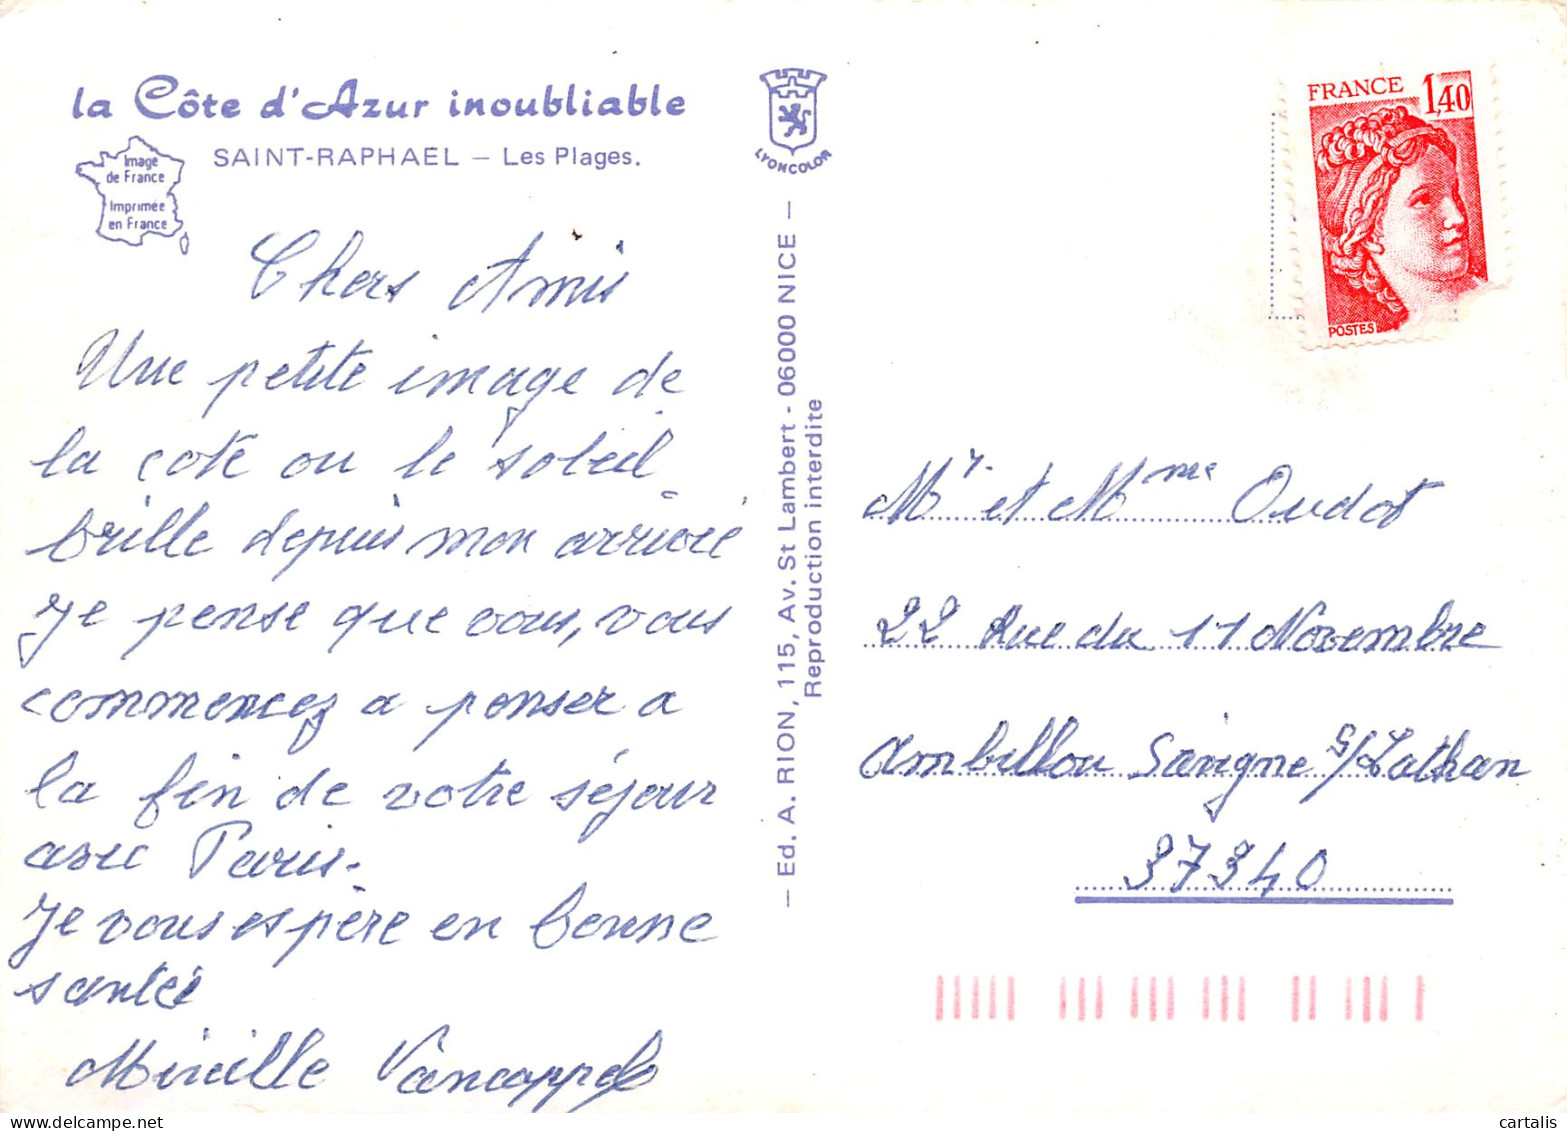 la Côte d'Azur inoubliable
SAINT-RAPHAEL – Les Plages.
Image
de France
Imprimée
en France
LYONCOLOR
Chers Amis
Une petite image de
la cote ou le soleil
brille depuis mon arrivée
Je pense que vous, vous
commencez a penser a
la fin de votre séjour
avec Paris.
Je vous espère en bonne
santée
Mireille
— Ed. A. RION, 115, Av. St Lambert - 06000 NICE —
Reproduction interdite
FRANCE 1,40
POSTES
Mr. et Mme Oudot
22 Rue du 11 Novembre
Ambillou Savigne s/Lathan
37340
cartalis